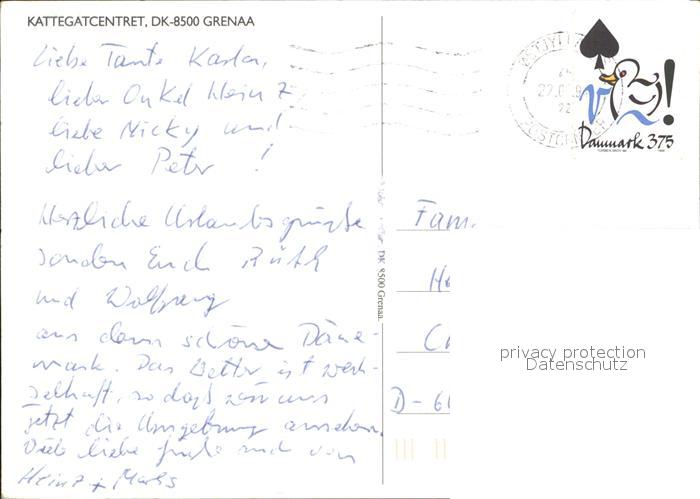 KATTEGATCENTRET, DK-8500 GRENAA
Liebe Tante Karla,
lieber Onkel Heinz
liebe Nicky und
lieber Peter !
Herzliche Urlaubsgrüße
senden Euch Ruth
und Wolfgang
aus dem schönen Däne-
mark. Das Wetter ist wech-
selhaft, so daß wir uns
jetzt die Umgebung ansehen.
Viele liebe Grüße auch von
Heinz +
DK 8500 Grenaa.
Danmark 375
Fam.
D-
privacy protection
Datenschutz